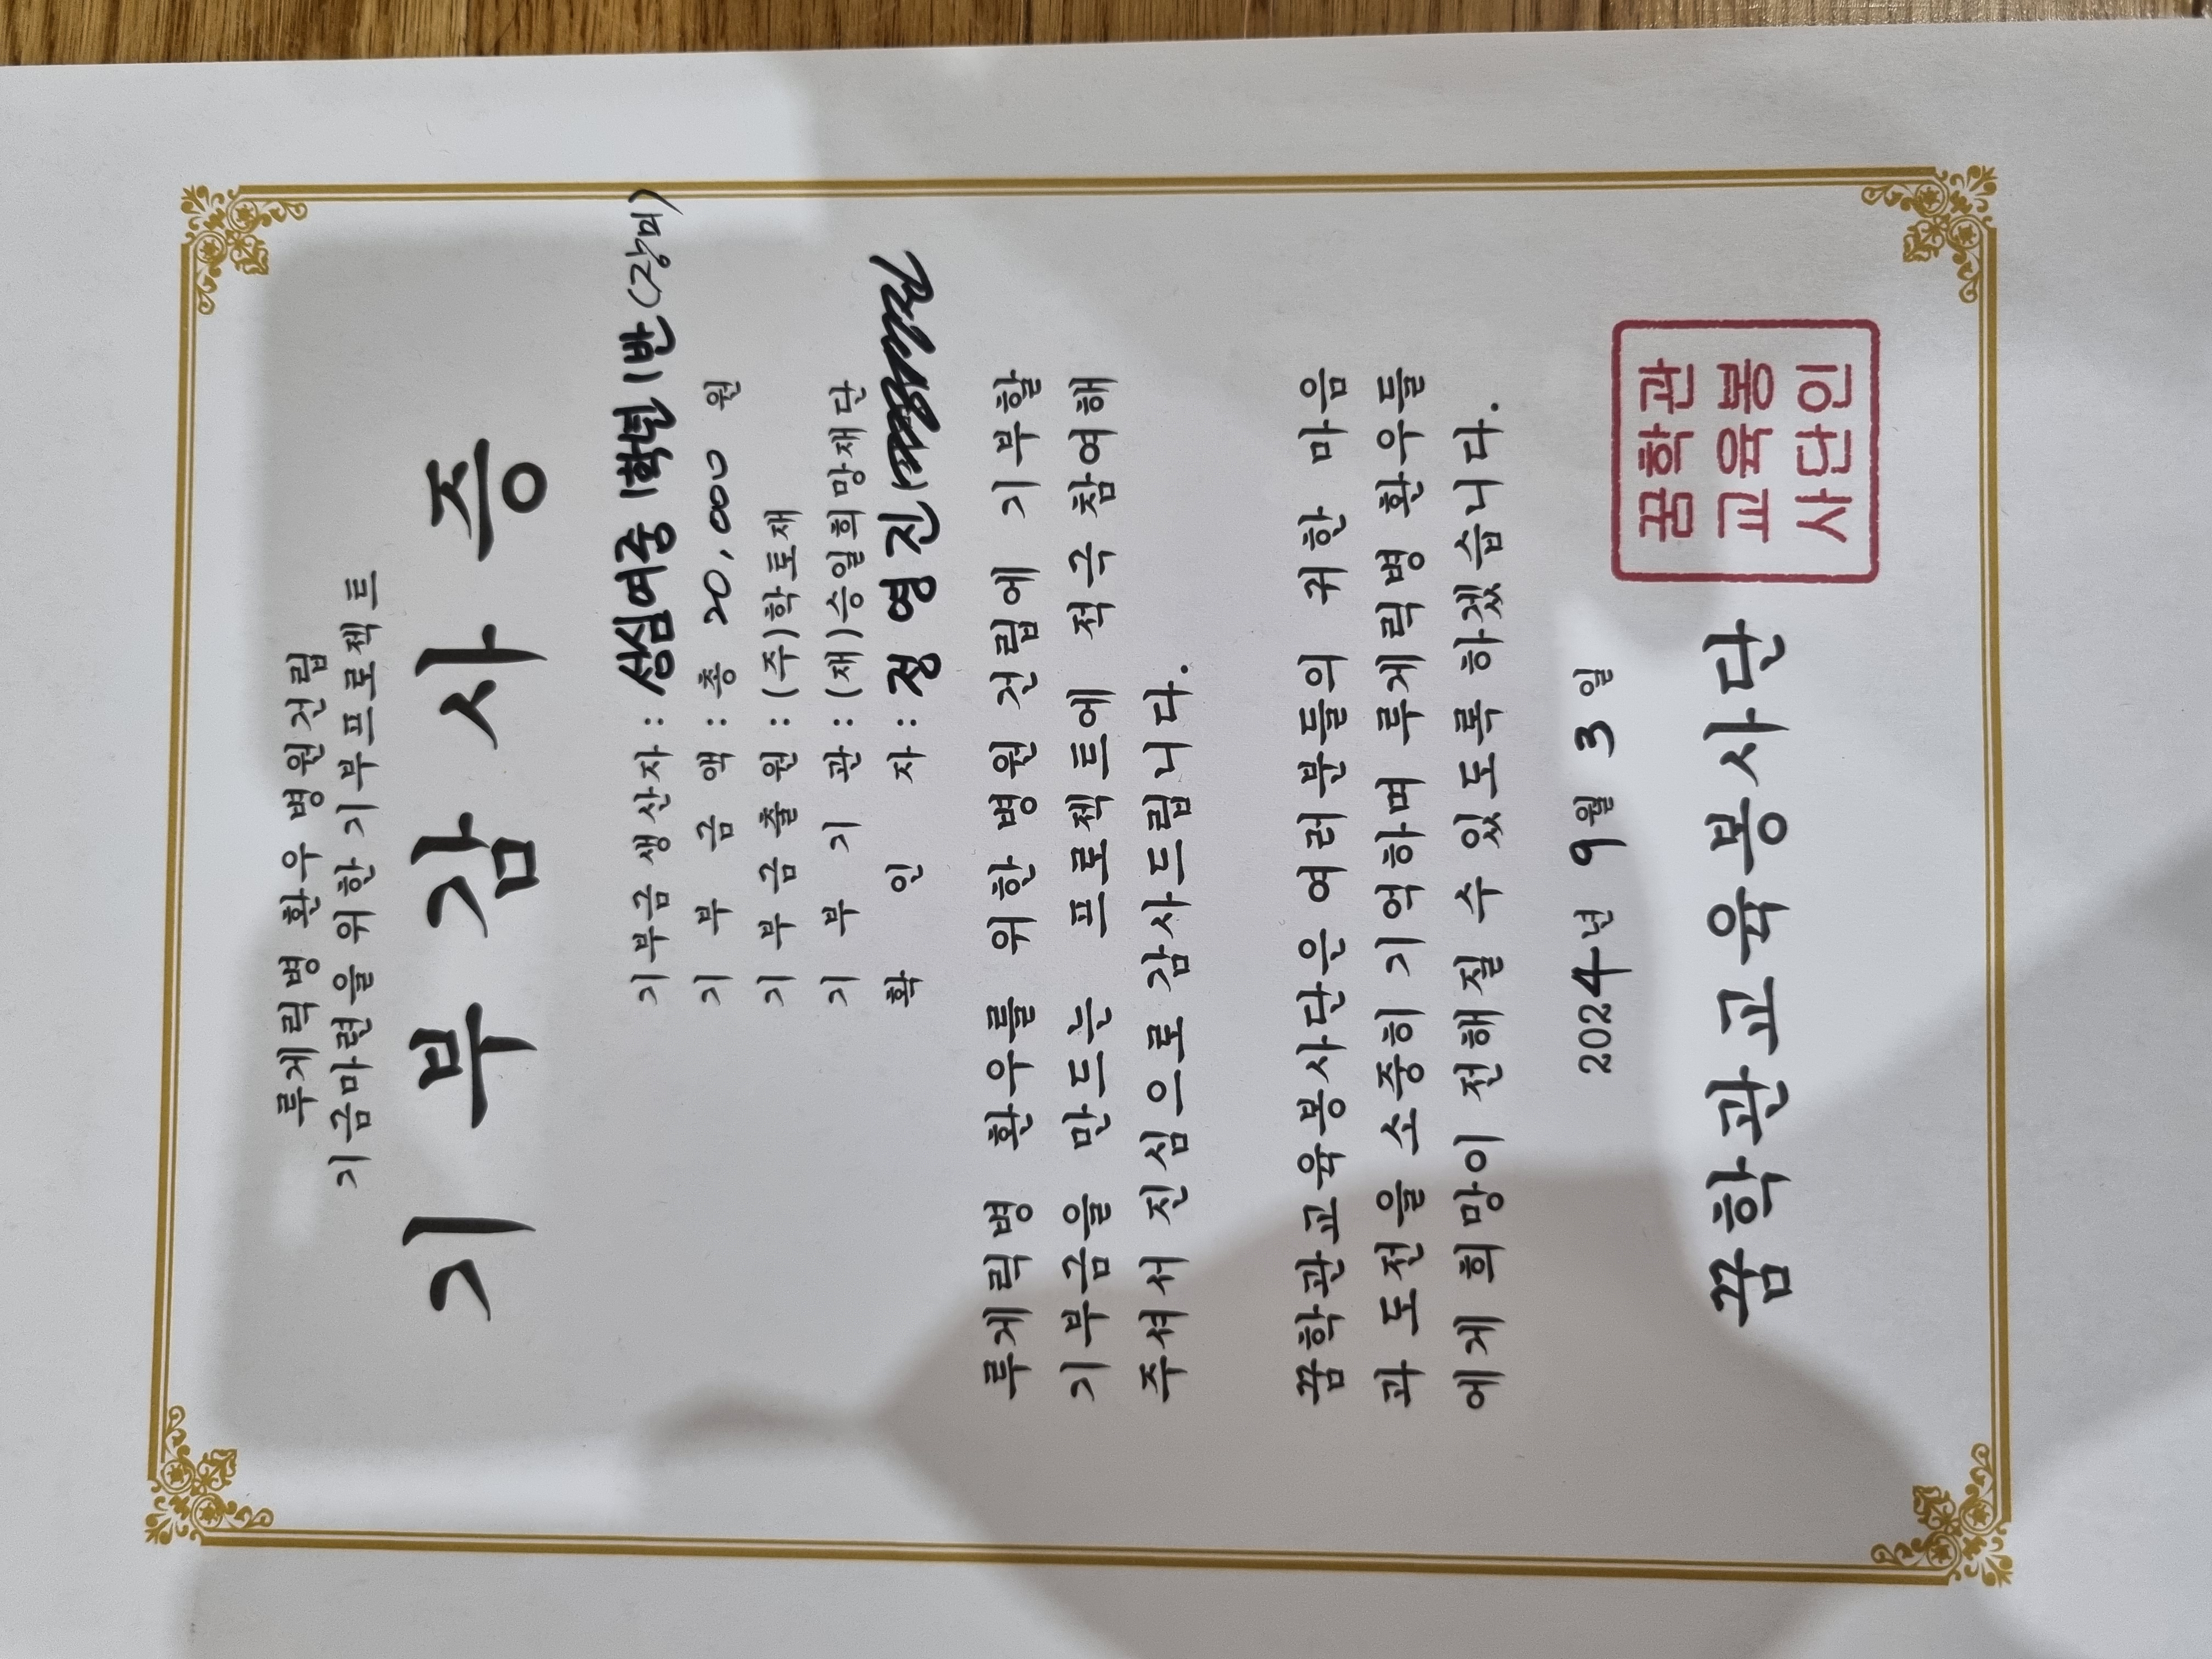 루게릭병 환우 병원건립
기금마련을 위한 기부프로젝트
기 부 감 사 증
기부금생산자 : 성심여중 1학년 1반 (장미)
기 부 금 액 : 총 20,000 원
기 부 금 출 원 : (주)학토재
기 부 기 관 : (재)승일희망재단
확 인 자 : 정영진
루게릭병 환우를 위한 병원 건립에 기부할
기부금을 만드는 프로젝트에 적극 참여해
주셔서 진심으로 감사드립니다.
꿈학관교육봉사단은 여러분들의 귀한 마음
과 도전을 소중히 기억하며 루게릭병 환우들
에게 희망이 전해질 수 있도록 하겠습니다.
2024년 9월 3일
꿈학관교육봉사단
꿈학관
교육봉
사단인